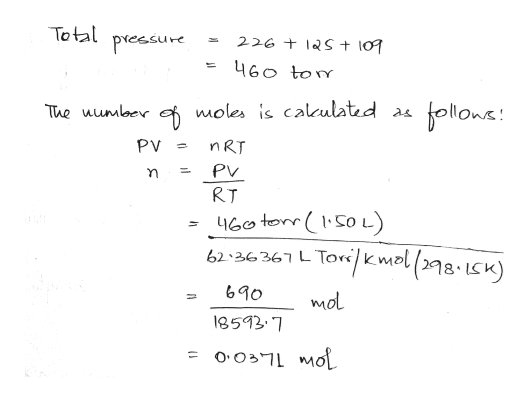 Total pressure = 226 + 125 + 109
= 460 torr
The number of moles is calculated as follows:
PV = nRT
n = PV
RT
= 460 torr (1.50 L)
62.36367 L Torr/K mol (298.15K)
= 690 mol
18593.7
= 0.0371 mol